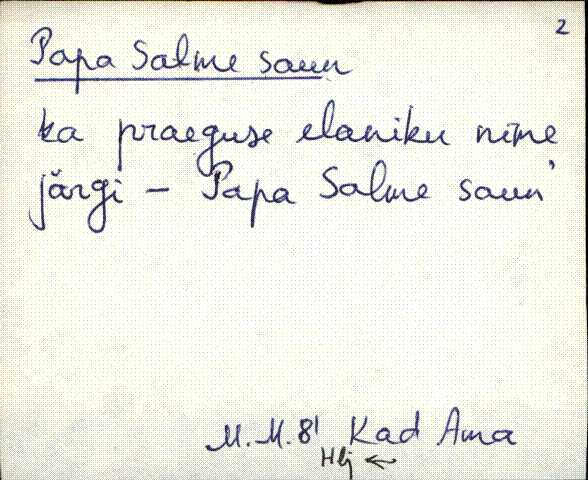 2
Papa Salme saun
ka praeguse elaniku nime
järgi – Papa Salme saun'
M. M. 81 Kad Ama
Hlj ←